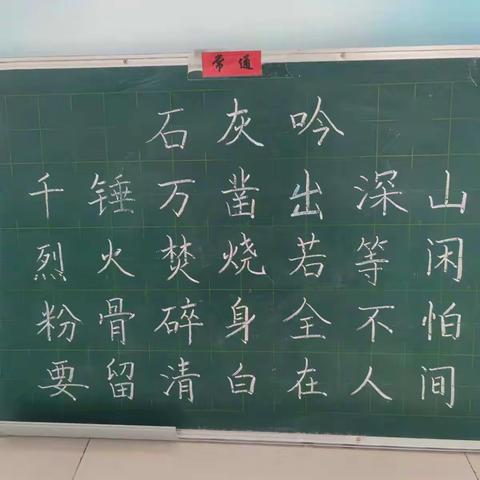 常通
石灰吟
千锤万凿出深山
烈火焚烧若等闲
粉骨碎身全不怕
要留清白在人间